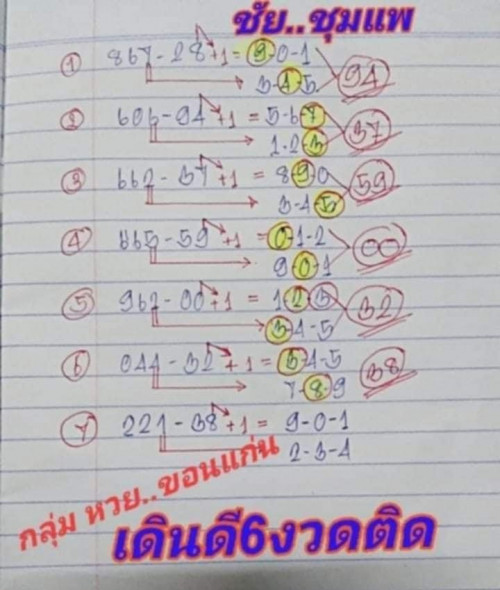 ชัย..ชุมแพ
1 867-28+1=9-0-1
3-4-5 94
2 606-94+1=5-6-7
1-2-3 37
3 662-37+1=8-9-0
3-4-5 59
4 665-59+1=0-1-2
9-0-1 00
5 962-00+1=1-2-3
3-4-5 32
6 044-32+1=3-4-5
7-8-9 38
7 221-38+1=9-0-1
2-3-4
กลุ่ม หวย..ขอนแก่น
เดินดี6งวดติด